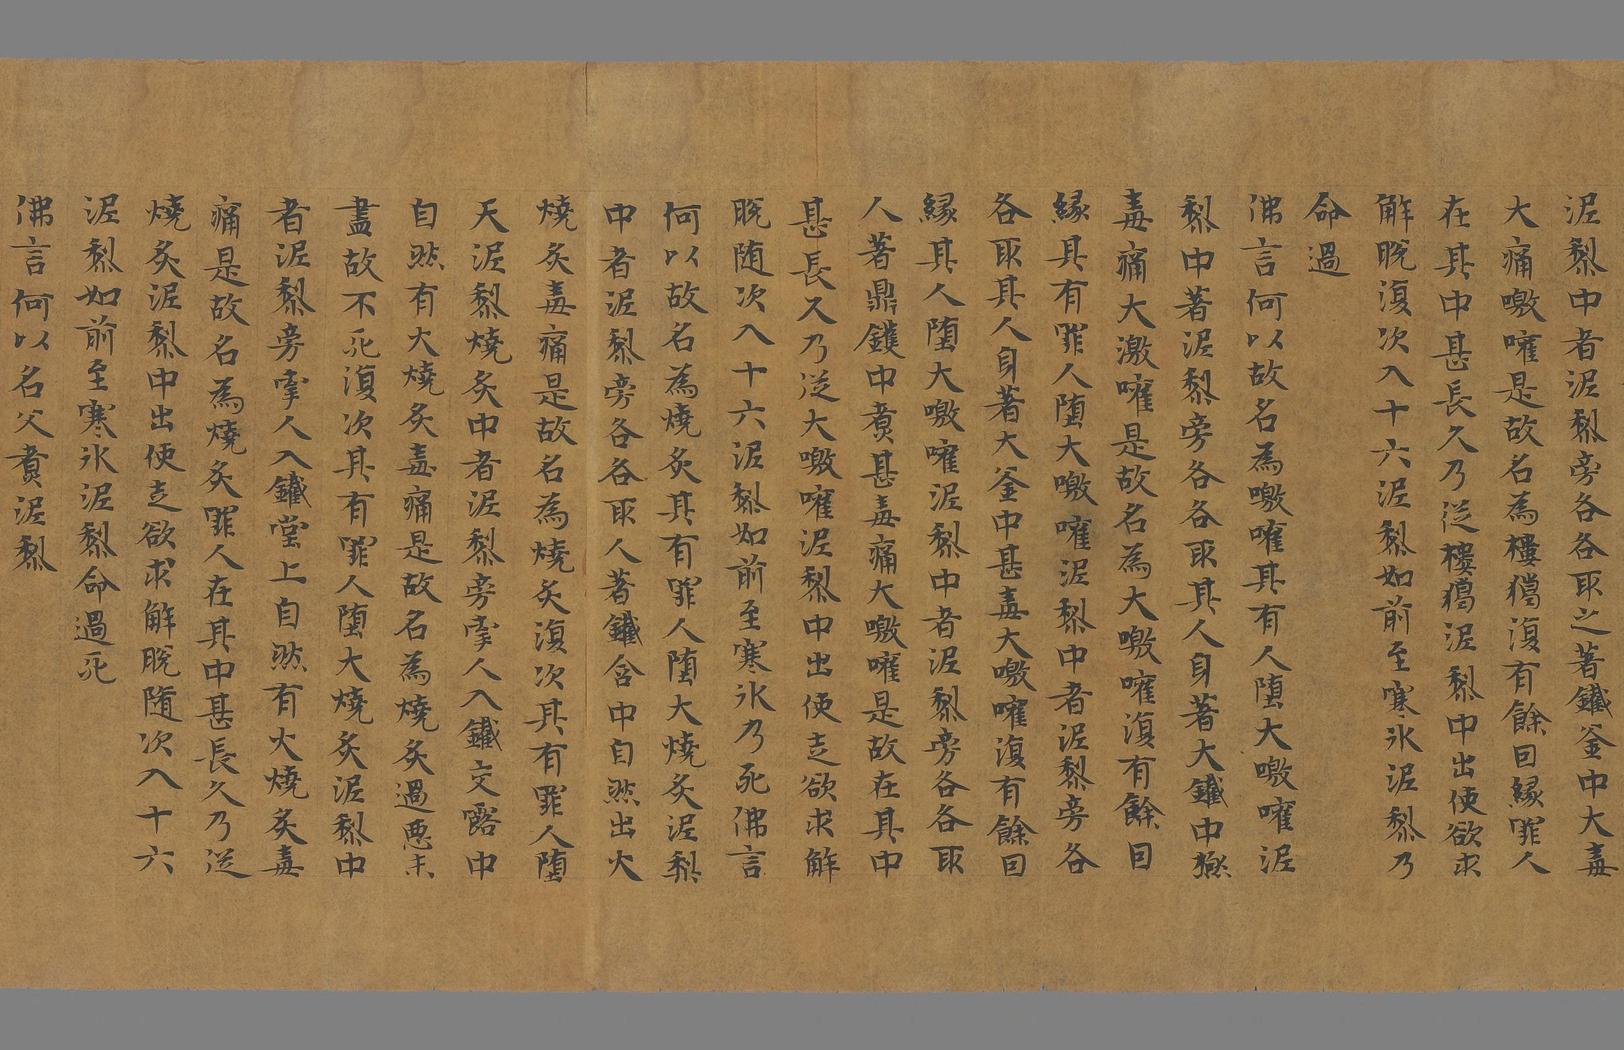 泥犁中者泥犁旁各各取之著鐵釜中大毒
大痛噭嚾是故名為樓獦復有餘因緣罪人
在其中甚長久乃従樓獦泥犁中出使欲求
解脫復次入十六泥犁如前至寒氷泥犁乃
命過
佛言何以故名為噭嚾其有人墮大噭嚾泥
犁中著泥犁旁各各取其人身著大鐵中㷱
毒痛大激嚾是故名為大噭嚾復有餘因
緣其有罪人墮大噭嚾泥犁中者泥犁旁各
各取其人身著大釜中甚毒大噭嚾復有餘因
緣其人墮大噭嚾泥犁中者泥犁旁各各取
人著鼎鑊中煑甚毒痛大噭嚾是故在其中
甚長久乃従大噭嚾泥犁中出使走欲求解
脫随次入十六泥犁如前至寒氷乃死佛言
何以故名為燒炙其有罪人墮大燒炙泥犁
中者泥犁旁各各取人著鐵含中自然出火
燒炙毒痛是故名為燒炙復次其有罪人墮
天泥犁燒炙中者泥犁旁牽人入鐵交露中
自然有大燒炙毒痛是故名為燒炙過悪未
盡故不死復次其有罪人墮大燒炙泥犁中
者泥犁旁牽人入鐵堂上自然有火燒炙毒
痛是故名為燒炙罪人在其中甚長久乃従
燒炙泥犁中出使走欲求解脫随次入十六
泥犁如前至寒氷泥犁命過死
佛言何以名父煑泥犁